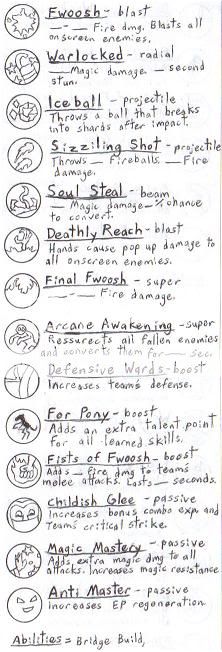 Fwoosh - blast
__-__ Fire dmg. Blasts all
onscreen enemies.
Warlocked - radial
__ Magic damage. __ second
stun.
Iceball - projectile
Throws a ball that breaks
into shards after impact.
Sizziling Shot - projectile
Throws __ Fireballs. __ Fire
damage.
Soul Steal - beam
__ Magic damage __% chance
to convert.
Deathly Reach - blast
Hands cause pop up damage to
all onscreen enemies.
Final Fwoosh - super
__-__ Fire damage.
Arcane Awakening - super
Ressurects all fallen enemies
and converts them for __ sec.
Defensive Wards - boost
Increases teams defense.
For Pony - boost
Adds an extra talent point
for all learned skills.
Fists of Fwoosh - boost
Adds __ fire dmg to teams
melee attacks. Lasts __ seconds.
Childish Glee - passive
Increases bonus combo exp. and
Teams critical strike.
Magic Mastery - passive
Adds extra magic dmg to all
attacks. Increases magic resistance
Anti Master - passive
increases EP regeneration.
Abilities = Bridge Build,